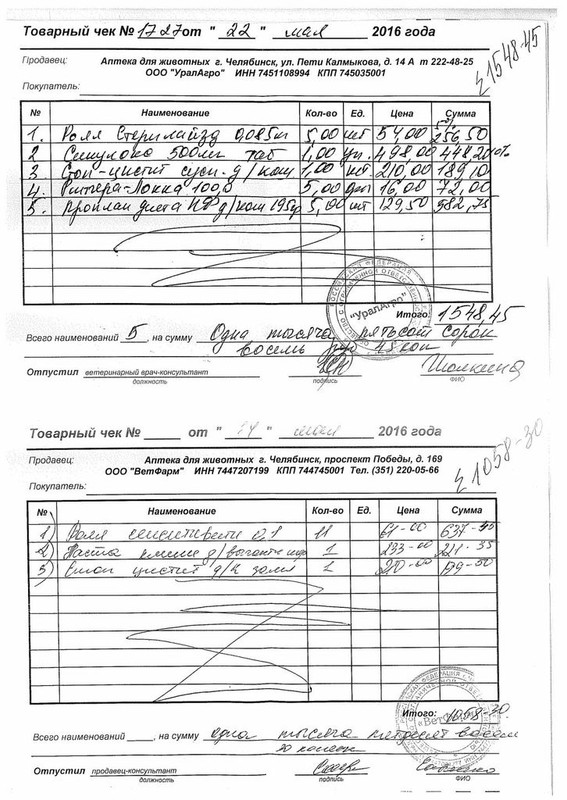 Товарный чек № 1727 от " 22 " мая 2016 года
Σ1548-45
Продавец: Аптека для животных г. Челябинск, ул. Пети Калмыкова, д. 14 А т 222-48-25
ООО "УралАгро" ИНН 7451108994 КПП 745035001
Покупатель:
№ Наименование Кол-во Ед. Цена Сумма
1. Роял Стерилайзд 0,085кг 5,00 шт 54,00 256,50
2 500мл таб 1,00 уп. 498,00 448,20 10%
3 Стоп-цистит сусп. д/кош 1,00 210,00 189,10
4. Рингера-Локка 100,0 5,00 16,00 72,00
5. Проплан диета д/кош 195гр 5,00 шт 129,50 582,75
"УралАгро"
Итого: 1548,45
Всего наименований 5 , на сумму Одна тысяча пятьсот сорок
восемь руб 45 коп
Отпустил ветеринарный врач-консультант
должность подпись ФИО
Товарный чек № от " 24 " мая 2016 года
Σ1058-30
Продавец: Аптека для животных г. Челябинск, проспект Победы, д. 169
ООО "ВетФарм" ИНН 7447207199 КПП 744745001 Тел. (351) 220-05-66
Покупатель:
№ Наименование Кол-во Ед. Цена Сумма
1) Роял 0,1 11 61-00 637-45
2) Паста д/ 1 233-00 221-35
3) Стоп цистит д/к 1 210-00 199-50
"ВетФарм"
Итого: 1058-30
Всего наименований , на сумму одна тысяча пятьдесят восемь
30 копеек
Отпустил продавец-консультант
должность подпись ФИО